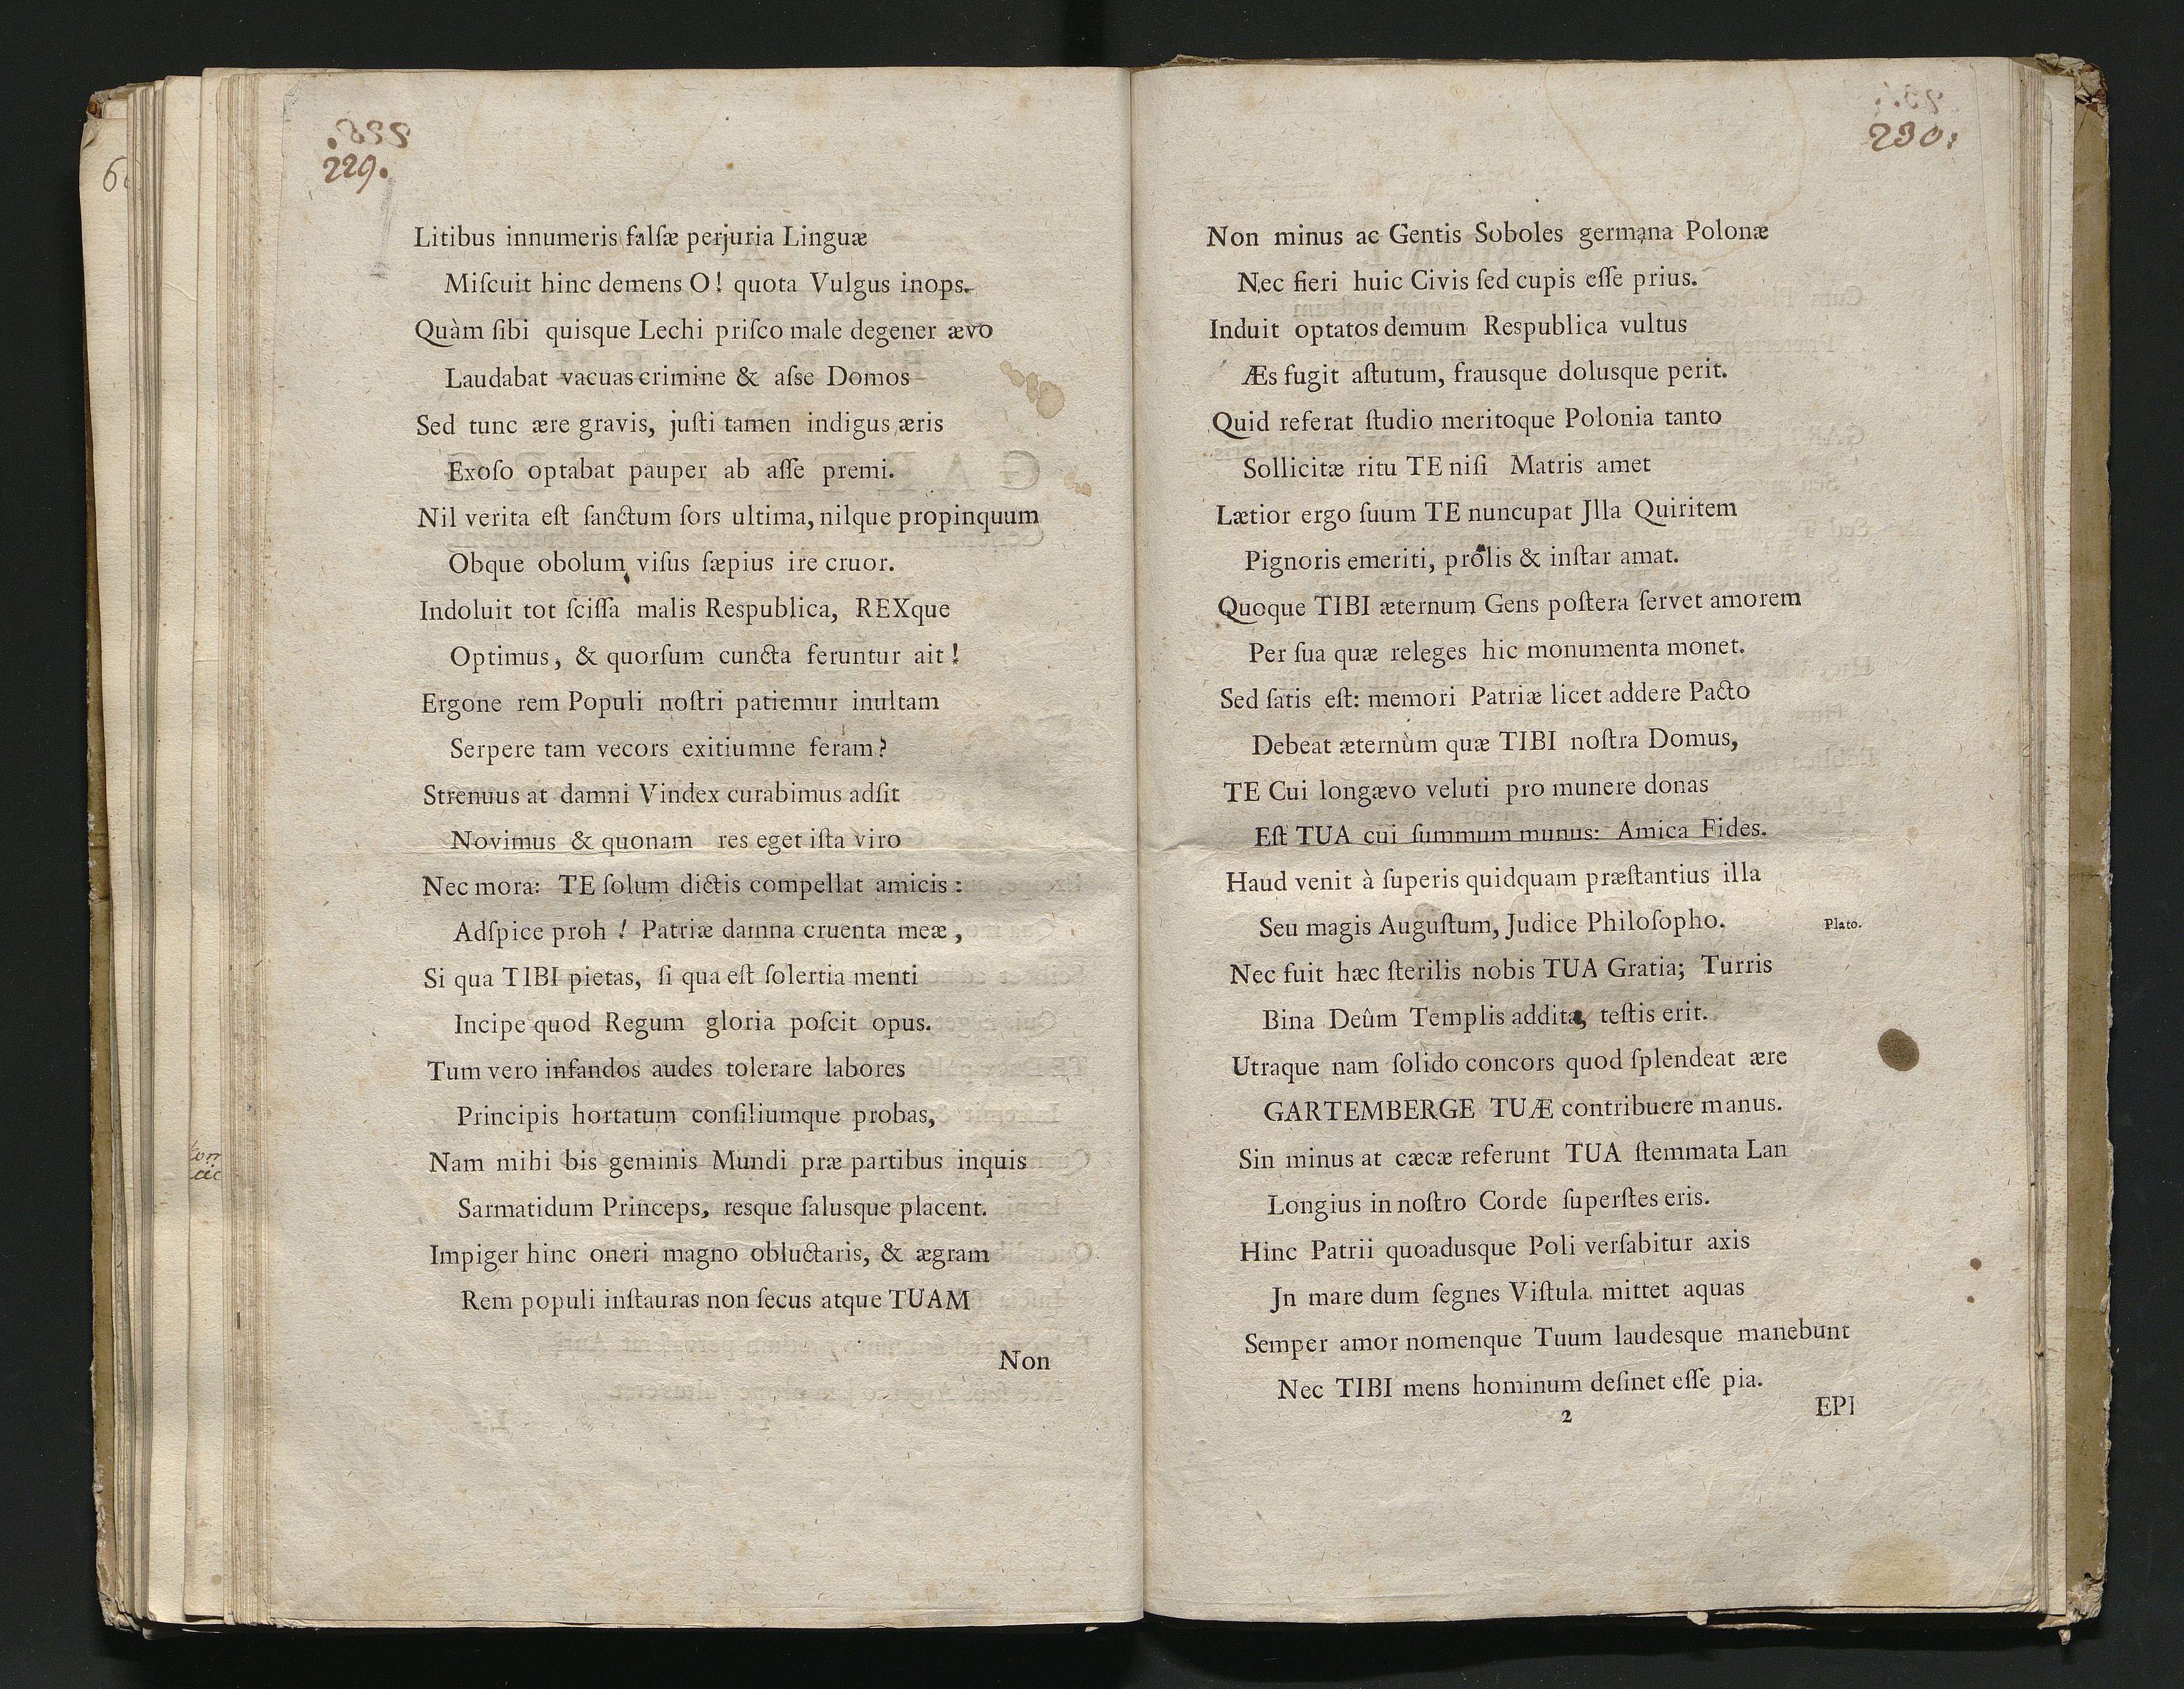 229.
Litibus innumeris falſæ perjuria Linguæ
Miſcuit hinc demens O! quota Vulgus inops.
Quàm ſibi quisque Lechi priſco male degener ævo
Laudabat vacuas crimine & aſse Domos
Sed tunc ære gravis, juſti tamen indigus æris
Exoſo optabat pauper ab aſſe premi.
Nil verita eſt ſanctum ſors ultima, nilque propinquum
Obque obolum viſus ſæpius ire cruor.
Indoluit tot ſciſſa malis Respublica, REXque
Optimus, & quorſum cuncta feruntur ait!
Ergone rem Populi noſtri patiemur inultam
Serpere tam vecors exitiumne feram?
Strenuus at damni Vindex curabimus adſit
Novimus & quonam res eget iſta viro
Nec mora: TE ſolum dictis compellat amicis:
Adſpice proh! Patriæ damna cruenta meæ,
Si qua TIBI pietas, ſi qua eſt ſolertia menti
Incipe quod Regum gloria poſcit opus.
Tum vero infandos audes tolerare labores
Principis hortatum conſiliumque probas,
Nam mihi bis geminis Mundi præ partibus inquis
Sarmatidum Princeps, resque ſalusque placent.
Impiger hinc oneri magno obluctaris, & ægram
Rem populi inſtauras non ſecus atque TUAM
Non
230.
Non minus ac Gentis Soboles germana Polonæ
Nec fieri huic Civis ſed cupis eſſe prius.
Induit optatos demum Respublica vultus
Æs fugit aſtutum, frausque dolusque perit.
Quid referat ſtudio meritoque Polonia tanto
Sollicitæ ritu TE niſi Matris amet
Lætior ergo ſuum TE nuncupat Jlla Quiritem
Pignoris emeriti, prolis & inſtar amat.
Quoque TIBI æternum Gens poſtera ſervet amorem
Per ſua quæ releges hic monumenta monet.
Sed ſatis eſt: memori Patriæ licet addere Pacto
Debeat æternùm quæ TIBI noſtra Domus,
TE Cui longævo veluti pro munere donas
Eſt TUA cui ſummum munus: Amica Fides.
Haud venit à ſuperis quidquam præſtantius illa
Seu magis Auguſtum, Judice Philoſopho. Plato.
Nec fuit hæc ſterilis nobis TUA Gratia; Turris
Bina Deûm Templis addita, teſtis erit.
Utraque nam ſolido concors quod ſplendeat ære
GARTEMBERGE TUÆ contribuere manus.
Sin minus at cæcæ referunt TUA ſtemmata Lan
Longius in noſtro Corde ſuperſtes eris.
Hinc Patrii quoadusque Poli verſabitur axis
Jn mare dum ſegnes Viſtula mittet aquas
Semper amor nomenque Tuum laudesque manebunt
Nec TIBI mens hominum deſinet eſſe pia.
2
EPI